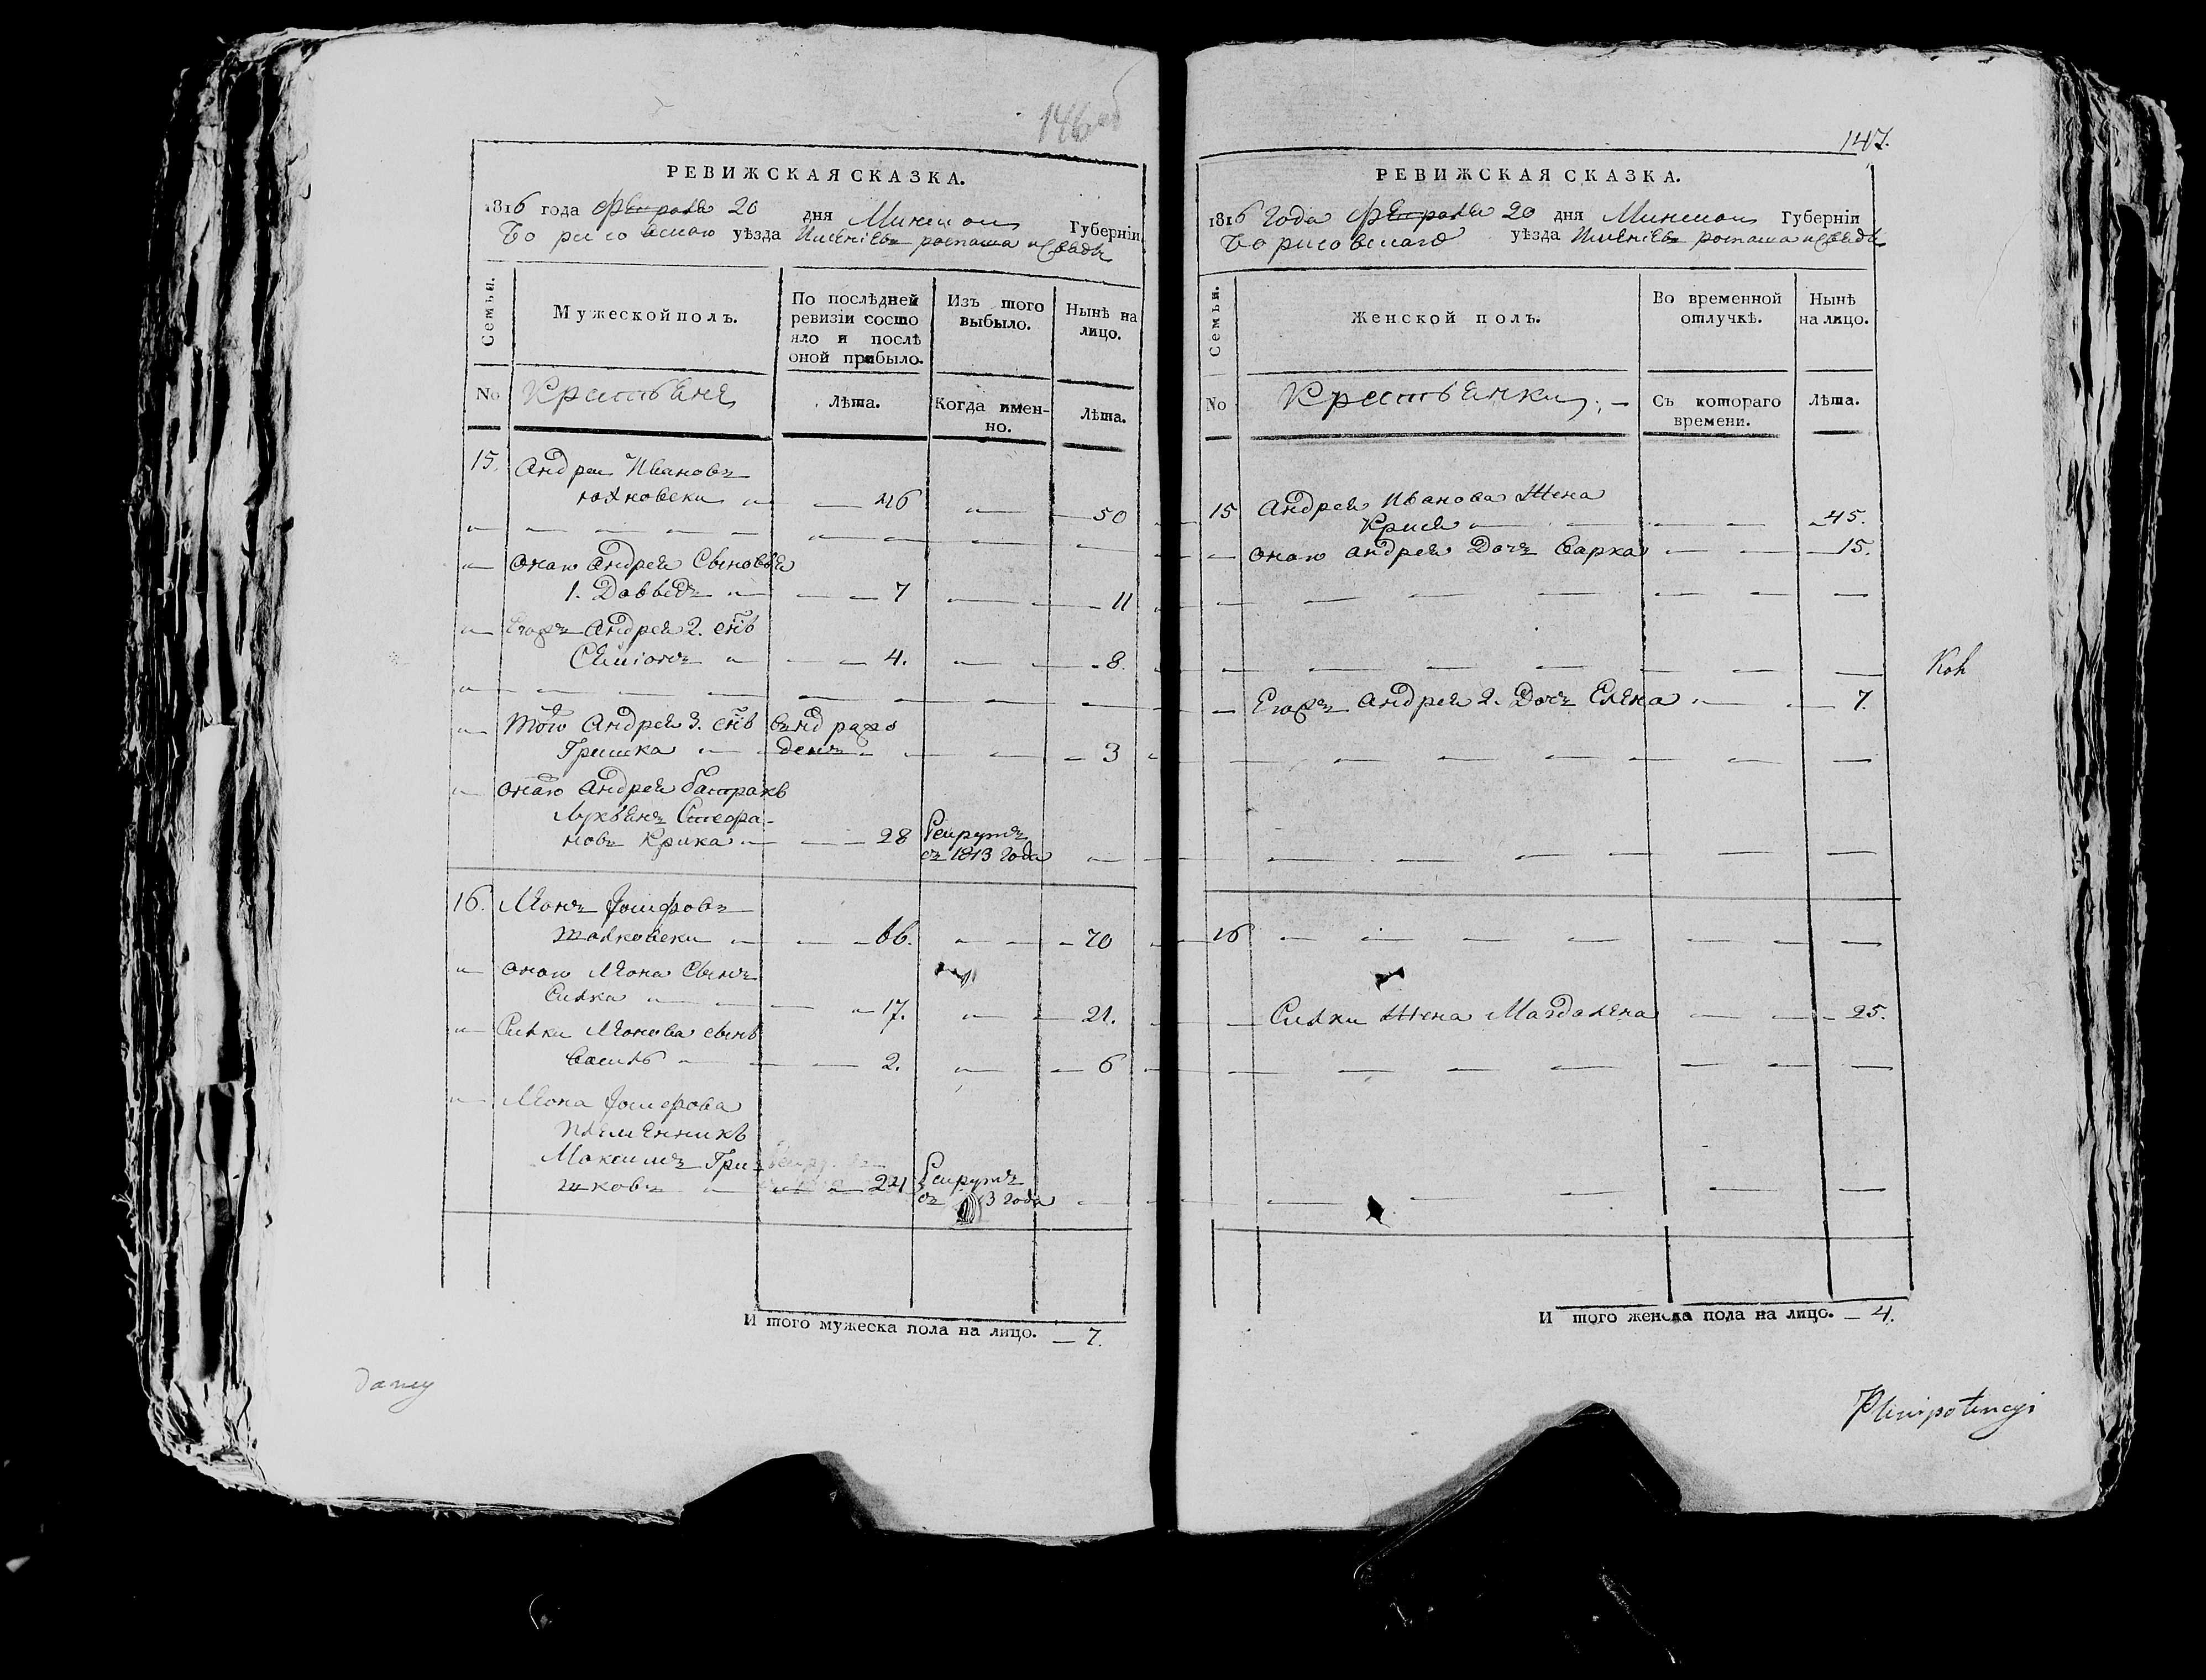 146 об
РЕВИЖСКАЯ СКАЗКА.
1816 года Февраля 20 дня Минской Губерніи
Борисовскаго уѣзда Имѣніевъ
Семьи.
Мужеской полъ.
По послѣдней ревизіи состо
яло и послѣ
оной прибыло.
Изъ того
выбыло.
Нынѣ на
лицо.
No
Крестьяне
Лѣта.
Когда имен-
но.
Лѣта.
15. Андрей Ивановъ
46 50
онаго Андрея Сыновья
1. Давыдъ 7 11
Егожъ Андрея 2. снъ
Симіонъ 4. 8.
того Андрея 3. снъ
Гришка 3
онаго Андрея батракъ
Лукьянъ Стефа-
новъ Крика 28 Рекрутъ
съ 1813 года
16. Леонъ Іосифовъ
66. 70
онаго Леона Сынъ
Силка 17. 21.
Силки Леонова сынъ
Василь 2. 6
Леона Іосифова
племенникъ
Максимъ Гри-
шковъ 24 Рекрутъ
съ 13 года
И того мужеска пола на лицо. 7.
dany
147.
РЕВИЖСКАЯ СКАЗКА.
1816 Года Февраля 20 дня Минской Губерніи
Борисовскаго уѣзда Имѣніевъ
Семьи.
Женской полъ.
Во временной
отлучкѣ.
Нынѣ
на лицо.
No
Крестьянки
Съ котораго
времени.
Лѣта.
15 Андрея Иванова Жена
45.
онаго Андрея Дочъ Варка 15.
Егожъ Андрея 2. Дочъ Елена 7.
16
Силки Жена Магдалена 25.
И того женска пола на лицо. 4.
Plenipotencyi